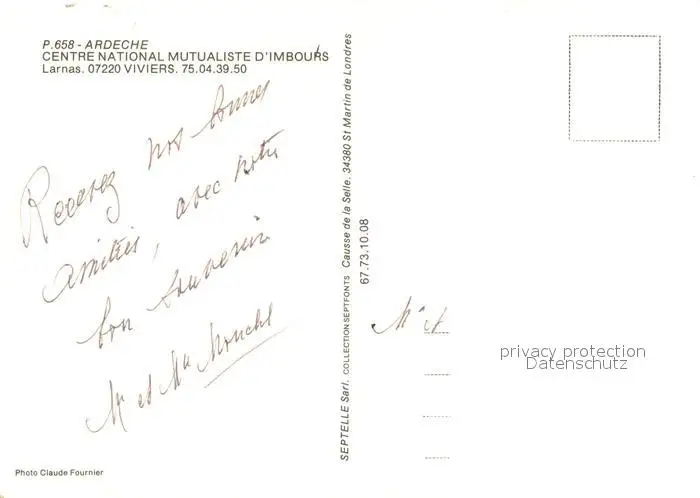 P.658 - ARDECHE
CENTRE NATIONAL MUTUALISTE D'IMBOURS
Larnas. 07220 VIVIERS. 75.04.39.50
Recevez nos bonnes
amitiés, avec notre
bon souvenir
Mr et Mme
Photo Claude Fournier
SEPTELLE Sarl. COLLECTION SEPTFONTS Causse de la Selle. 34380 St Martin de Londres
67.73.10.08
Mr et
privacy protection
Datenschutz